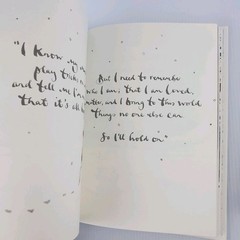 "I know my
play tri
and tell me I'm
that it's all
But I need to remember
who I am; that I am loved,
matter, and I bring to this world
things no one else can.
So I'll hold on."